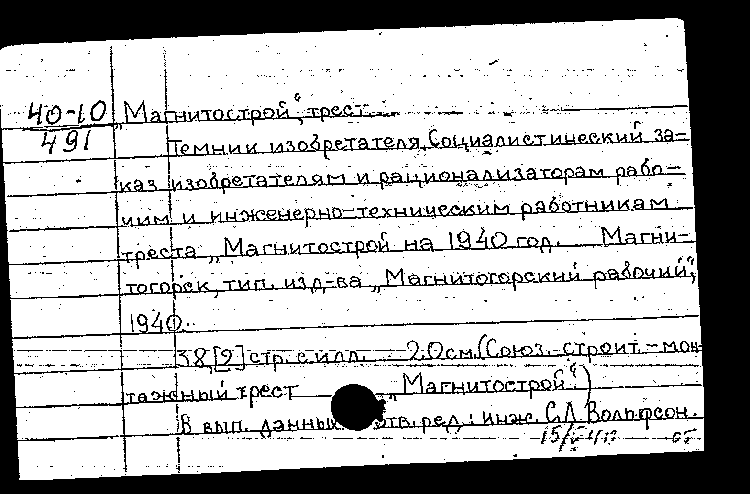 40-10
491
„Магнитострой“, трест.
Темник изобретателя. Социалистический за-
каз изобретателям и рационализаторам рабо-
чим и инженерно-техническим работникам
треста „Магнитострой на 1940 год. Магни-
тогорск, тип. изд-ва „Магнитогорский рабочий“,
1940.
38, [2] стр. с илл. 20см. (Союз. строит.-мон
тажный трест „Магнитострой“.)
В вып. данных отв. ред.: инж. С.Л. Вольфсон.